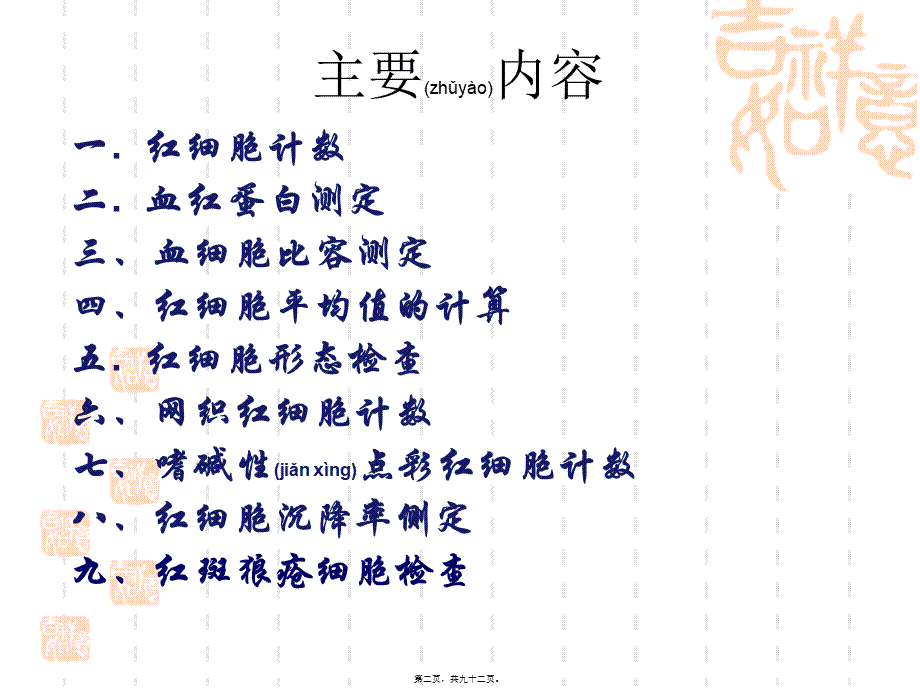 吉祥如意
主要(zhǔyào)内容
一. 红细胞计数
二. 血红蛋白测定
三、血细胞比容测定
四、红细胞平均值的计算
五. 红细胞形态检查
六、网织红细胞计数
七、嗜碱性(jiǎn xìng)点彩红细胞计数
八、红细胞沉降率侧定
九、红斑狼疮细胞检查
第二页，共九十二页。